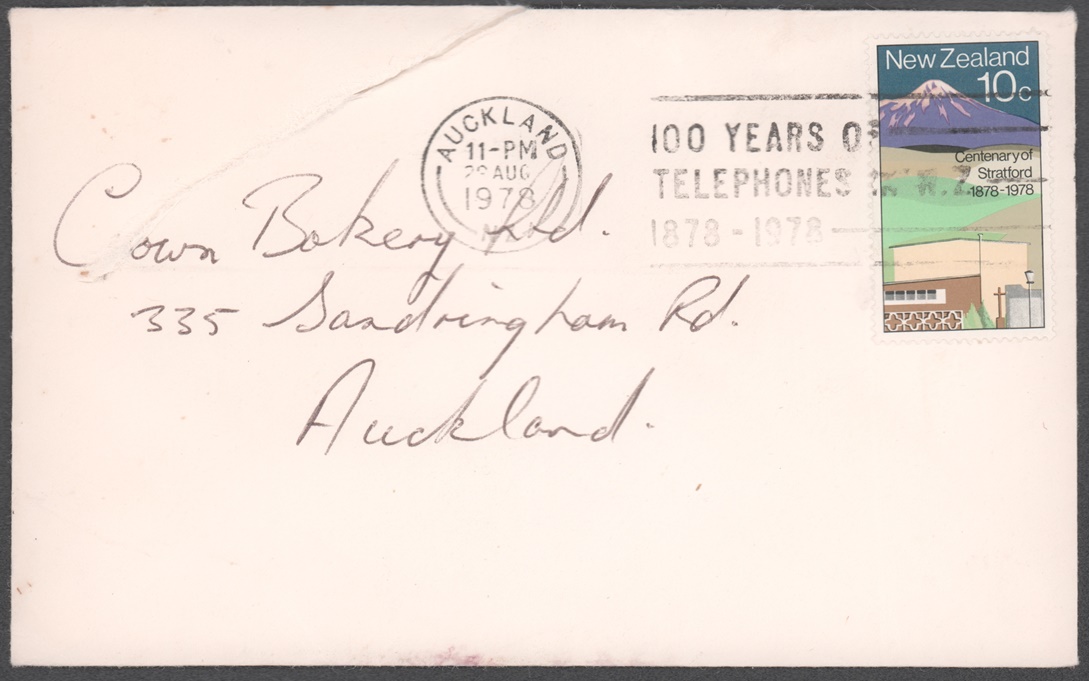 AUCKLAND
11-PM
29 AUG
1978
N.Z.
100 YEARS OF
TELEPHONES IN N.Z.
1878 - 1978
New Zealand
10c
Centenary of
Stratford
1878-1978
Cown Bakery Ltd.
335 Sandringham Rd.
Auckland.